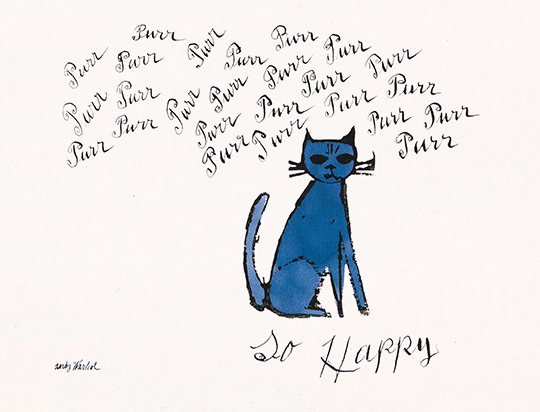 Purr Purr Purr Purr
Purr Purr Purr Purr
Purr Purr Purr Purr Purr
Purr Purr Purr Purr Purr Purr
Purr Purr Purr Purr
Purr Purr
So Happy
Andy Warhol